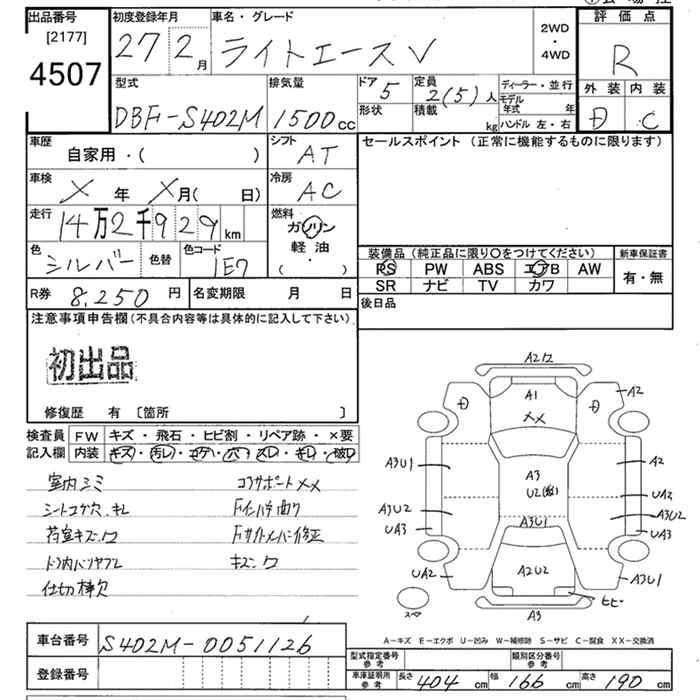 出品番号
[2177]
4507
初度登録年月
27 2月
車名・グレード
ライトエースV
2WD
・
4WD
評価点
R
外装 内装
D C
型式
DBF-S402M
排気量
1500cc
ドア
5
定員
2(5)人
形状
積載
kg
ディーラー・並行
モデル年式 年
ハンドル 左・右
車歴
自家用・( )
シフト
AT
車検
X 年 X月( 日)
冷房
AC
走行
14万2千929km
燃料
ガソリン
軽油
( )
色
シルバー
色替
色コード
1E7
R券 8,250 円
名変期限 月 日
セールスポイント (正常に機能するものに限ります)
装備品 (純正品に限り〇をつけてください)
新車保証書
PS PW ABS エアB AW
SR ナビ TV カワ
有・無
後日品
注意事項申告欄(不具合内容等は具体的に記入して下さい)
初出品
修復歴 有 〔箇所 〕
検査員記入欄
FW キズ・飛石・ヒビ割・リペア跡・×要
内装 キズ・汚レ・コゲ・穴・スレ・キレ・破レ
室内シミ
シートコゲ穴、キレ
荷室キズ、ワ
ドア内バリヤブレ
仕切棒欠
コアサポートXX
Fインパネ曲リ
Fサイドメンバー修正
キズ、ワ
A2ワ
A1
XX
D
D
A2
A3U1
A2
A3
U2
UA2
A3U2
A3U2
UA3
UA3
A3U1
UA2
A2U2
A3U1
ヒビ
A3
スペア
A-キズ E-エクボ U-凹み W-補修跡 S-サビ C-腐食 XX-交換済
車台番号 S402M-0051126
登録番号
型式指定番号 参考
類別区分番号 参考
車庫証明用 参考
長さ 404 cm
幅 166 cm
高さ 190 cm